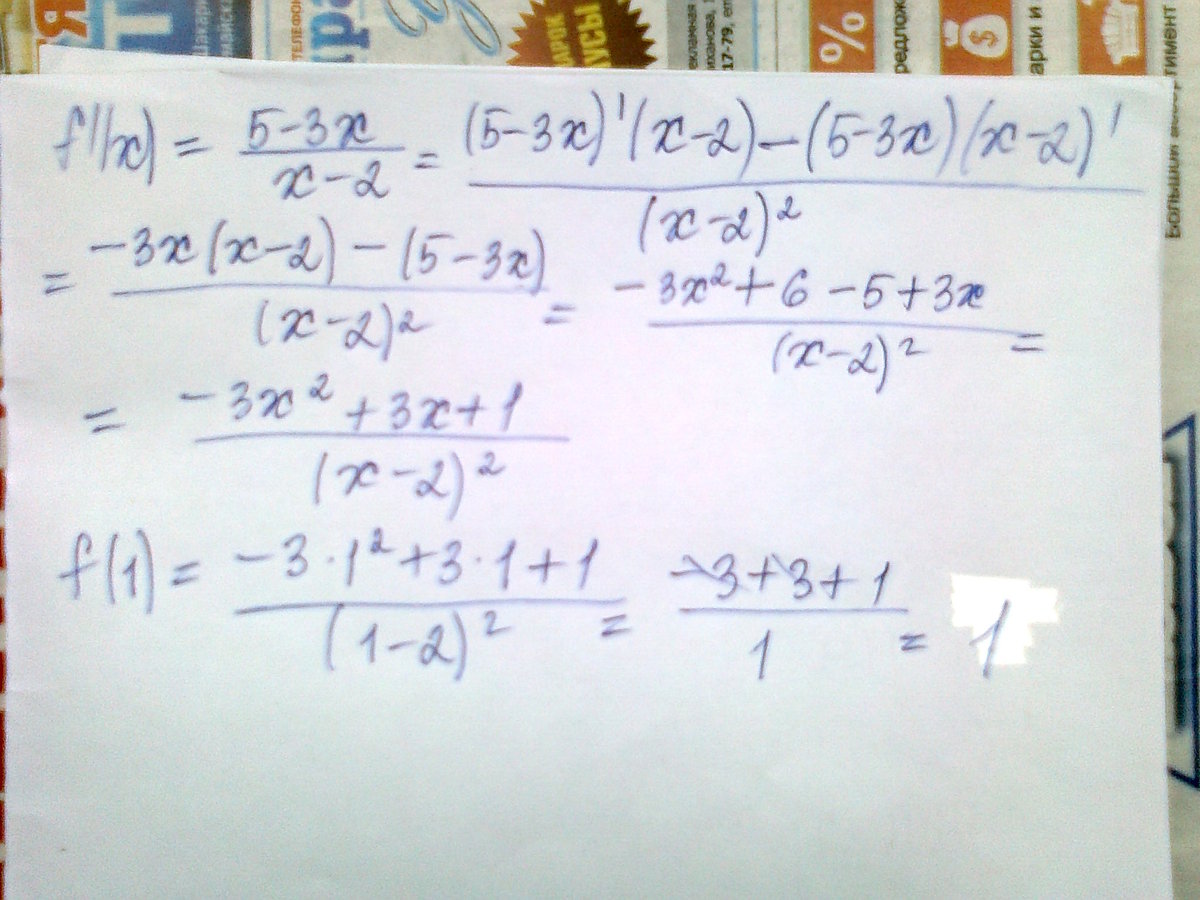 ТЕЛЕФОН
УСЫ
%
$
17-79,
арки и
Больший
f'(x) = \frac{5-3x}{x-2} = \frac{(5-3x)'(x-2)-(5-3x)(x-2)'}{(x-2)^2}
= \frac{-3x(x-2)-(5-3x)}{(x-2)^2} = \frac{-3x^2+6-5+3x}{(x-2)^2} =
= \frac{-3x^2+3x+1}{(x-2)^2}
f(1) = \frac{-3·1^2+3·1+1}{(1-2)^2} = \frac{-3+3+1}{1} = 1